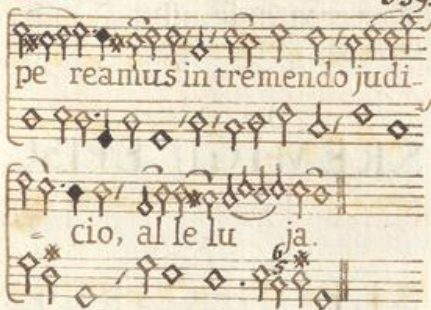 pe reamus in tremendo judi-
- cio, al le lu ja.
6
5